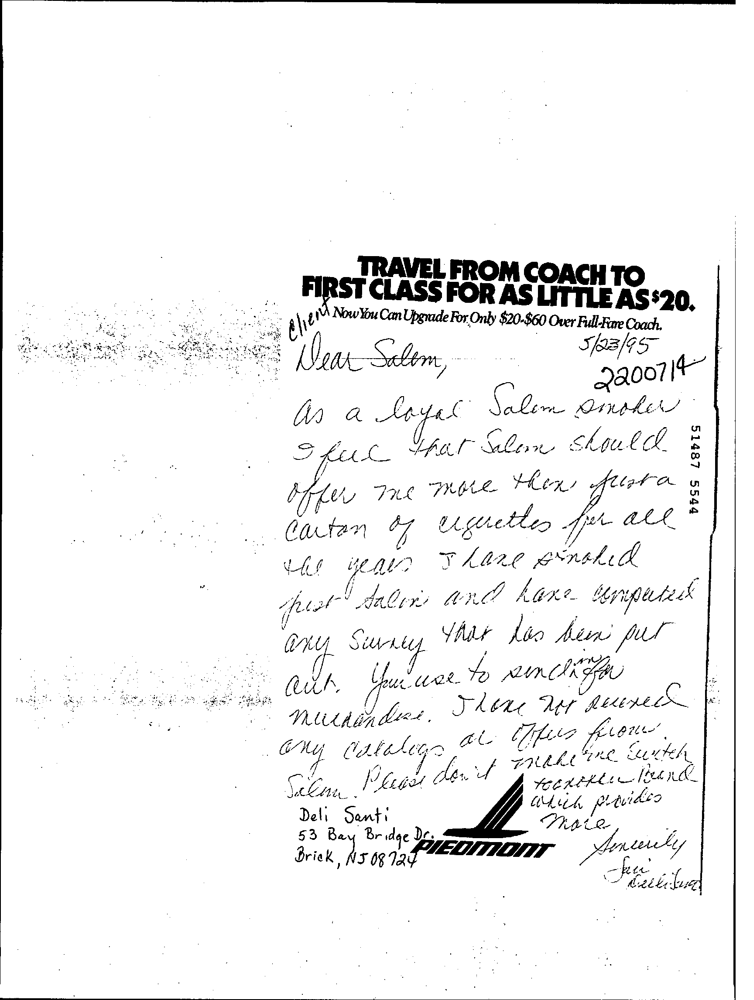 TRAVEL FROM COACH TO
FIRST CLASS FOR AS LITTLE AS $20.
Now You Can Upgrade For Only $20-$60 Over Full-Fare Coach.
Client
5/23/95
Dear Salem,
2200714
As a loyal Salem smoker
I feel that Salem should
offer me more then just a
carton of cigerettes for all
the years I have smoked
just Salem and have
any Survey that has been put
out. You use to send in for
merchandise. I have not received
any catalogs or offers from
Salem. Please don't make me switch
to another Brand
which provides
more
Sincerely
Deli Santi
53 Bay Bridge Dr.
Brick, NJ 08724
PIEDMONT
51487 5544